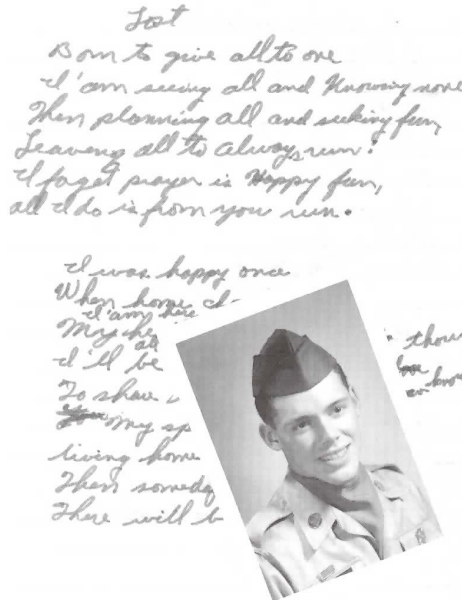 Lost
Born to give all to one
I'am seeing all and Knowing none
Then planning all and seeking fun,
Leaveng all to always run!
I foget prayer is Happy fun,
all I do is from you run.
I was happy once
When home
I'am here
My he
al
thou
I'll be
To share
know
my sp
living home
Then someda
There will b